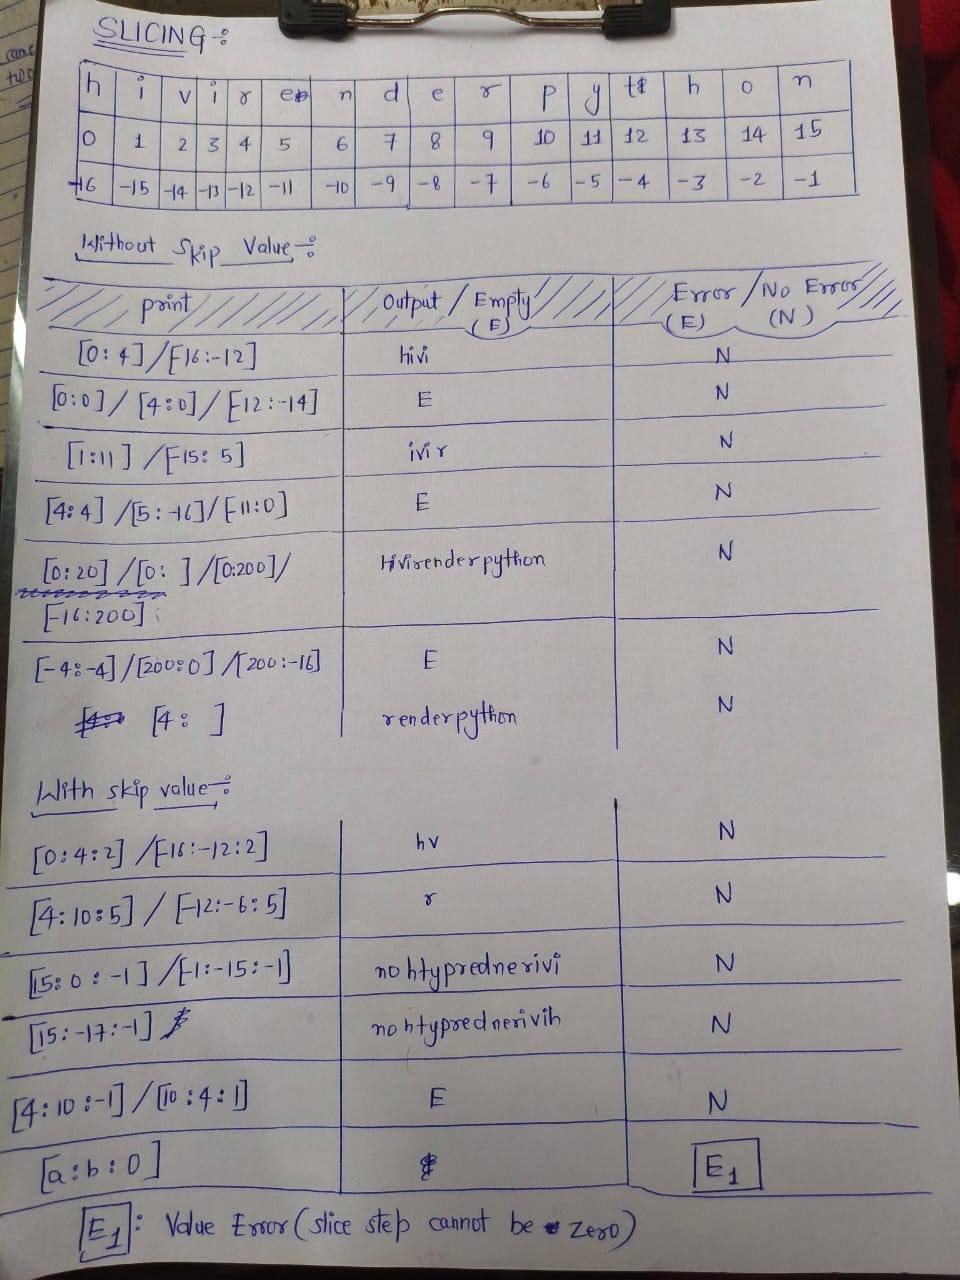 SLICING :
h i v i r e n d e r p y t h o n
0 1 2 3 4 5 6 7 8 9 10 11 12 13 14 15
-16 -15 -14 -13 -12 -11 -10 -9 -8 -7 -6 -5 -4 -3 -2 -1
Without Skip Value :
print Output / Empty (E) Error / No Error (E) (N)
[0:4]/[-16:-12] hivi N
[0:0]/[4:0]/[-12:-14] E N
[1:11]/[-15:5] ivir N
[4:4]/[5:-16]/[-11:0] E N
[0:20]/[0: ]/[0:200]/ hivirenderpython N
[-16:200]
[-4:-4]/[200:0]/[200:-16] E N
[4: ] renderpython N
With skip value :
[0:4:2]/[-16:-12:2] hv N
[4:10:5]/[-12:-6:5] r N
[15:0:-1]/[-1:-15:-1] nohtyprednerivi N
[15:-17:-1] nohtyprednerivih N
[4:10:-1]/[10:4:1] E N
[a:b:0] E1
E1: Value Error (slice step cannot be zero)